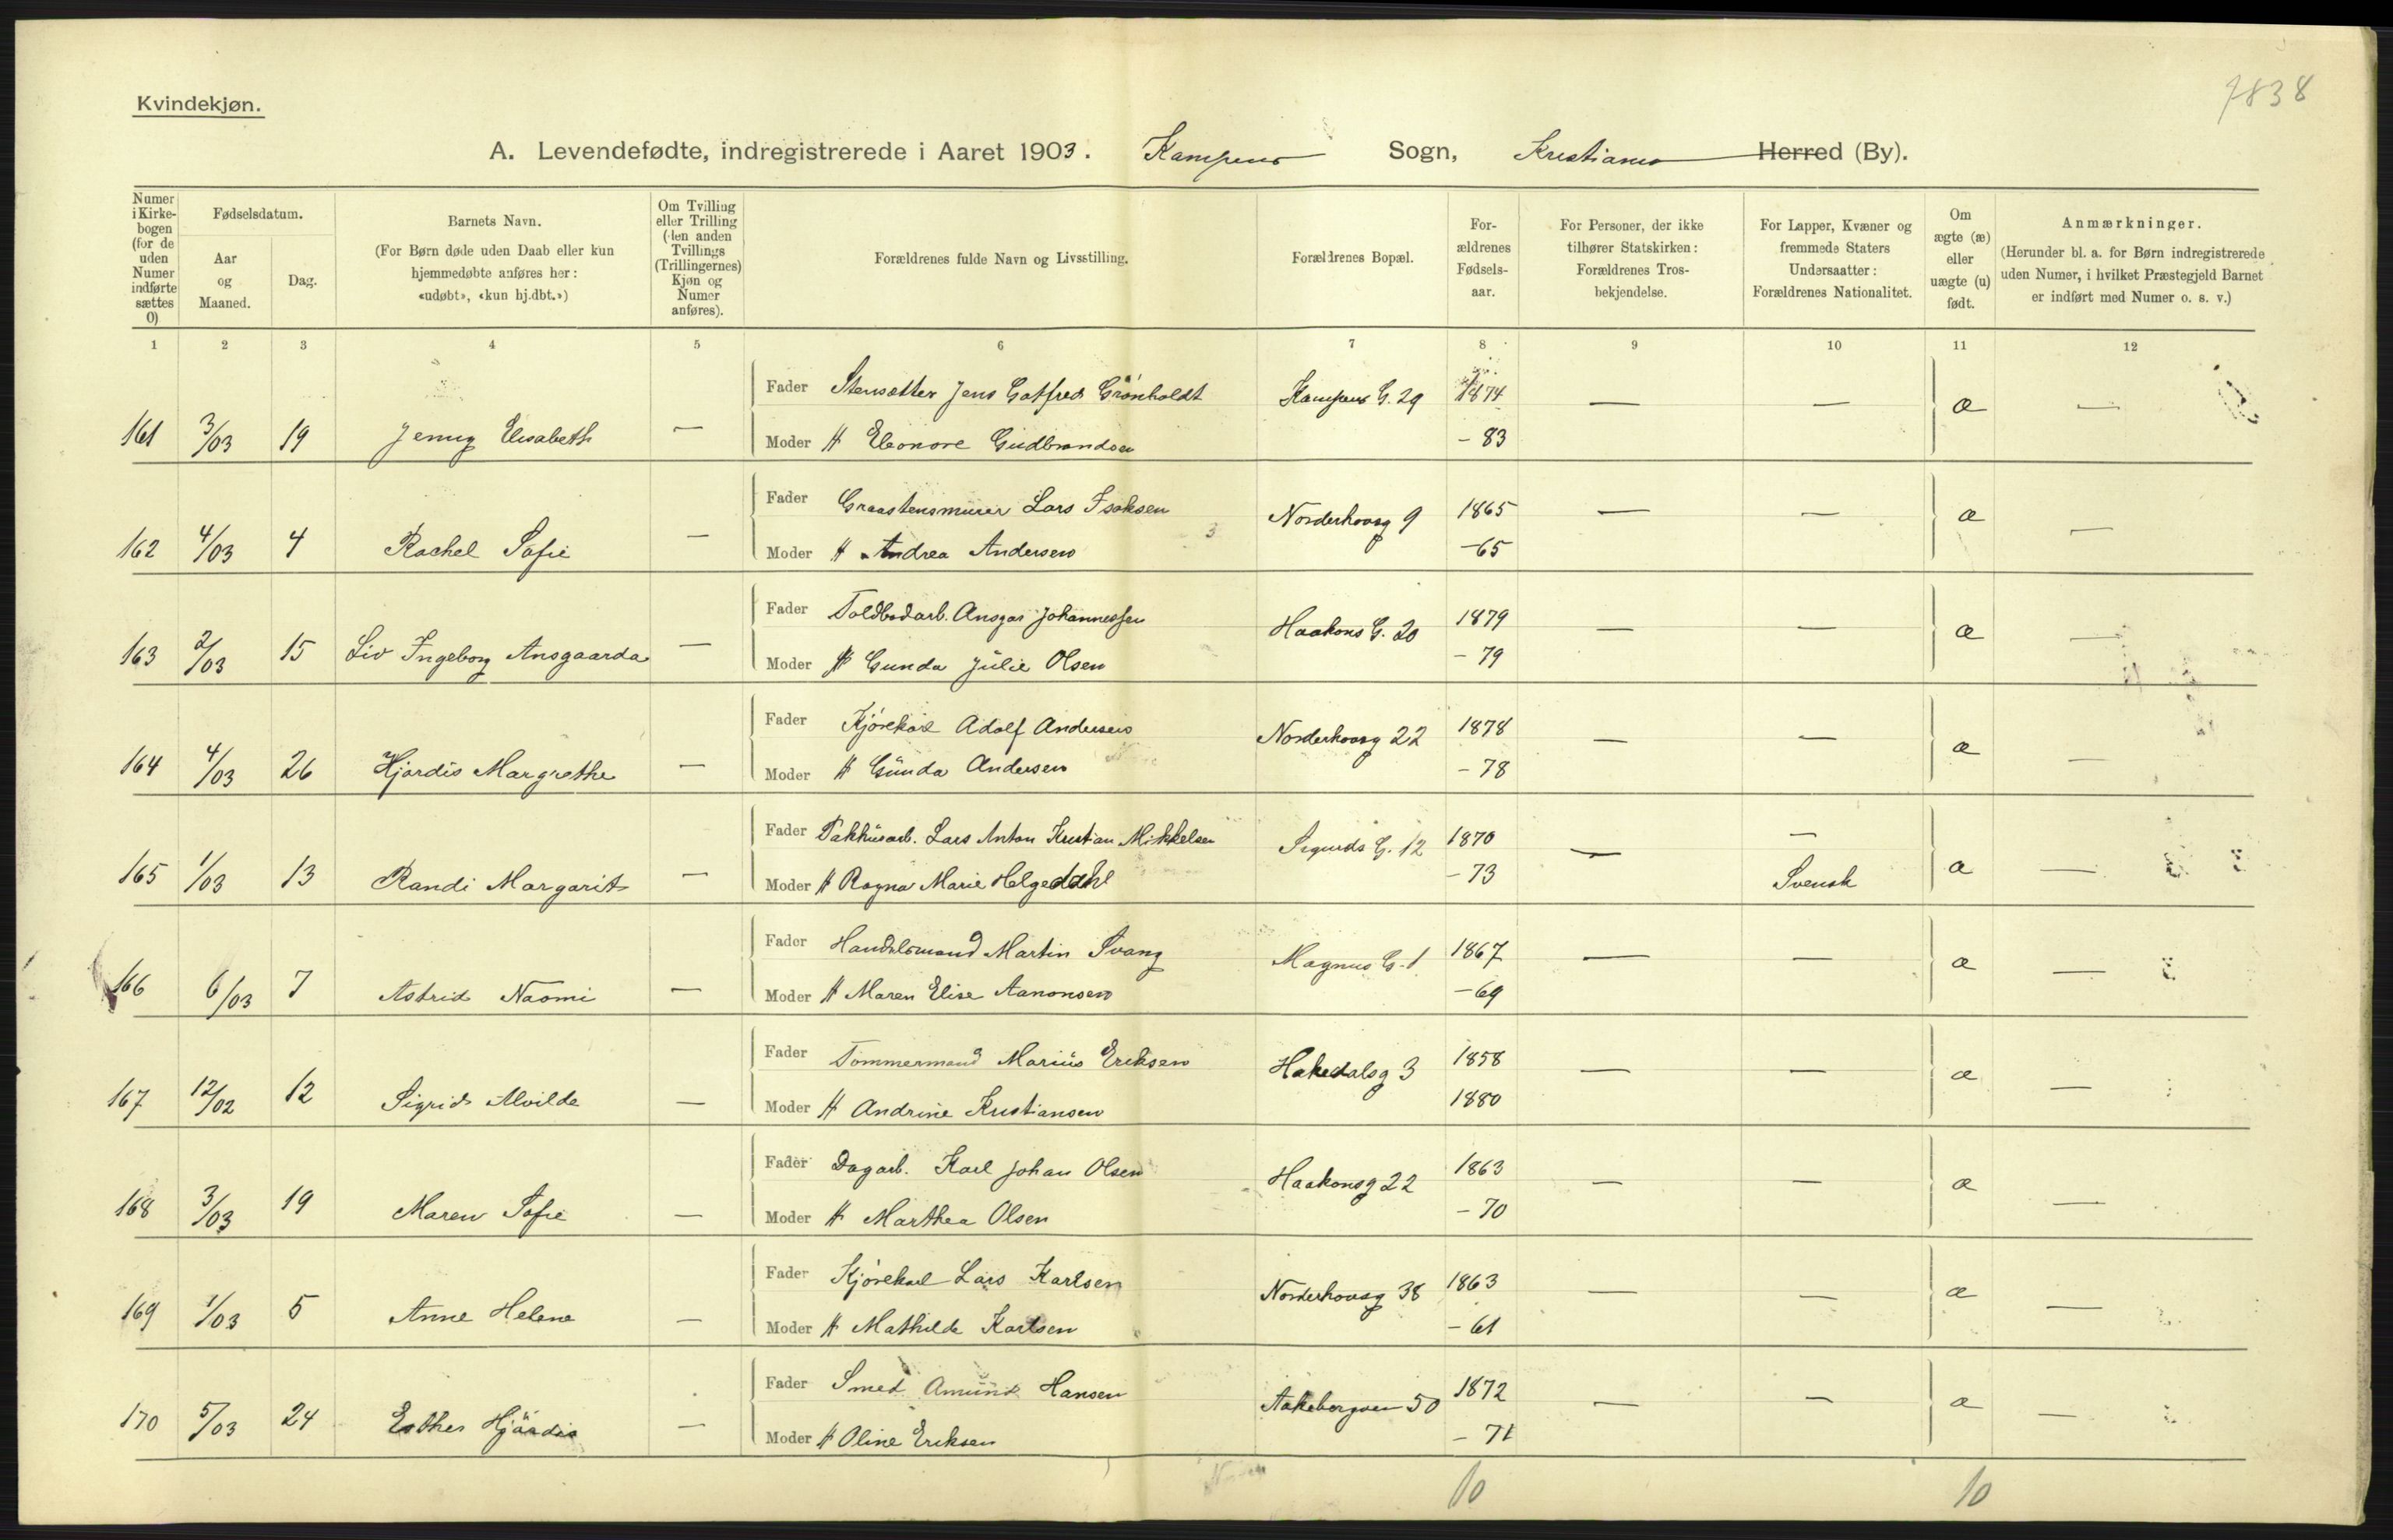 7838
Kvindekjøn.
A. Levendefødte, indregistrerede i Aaret 1903. Kampens Sogn, Kristiania Herred (By).
Numer i Kirke-bogen (for de uden Numer indførte sættes 0)
Fødselsdatum.
Aar og Maaned.
Dag.
Barnets Navn.
(For Børn døde uden Daab eller kun hjemmedøbte anføres her: «udøbt», «kun hj.dbt.»)
Om Tvilling eller Trilling (den anden Tvillings (Trillingernes) Kjøn og Numer anføres).
Forældrenes fulde Navn og Livsstilling.
Forældrenes Bopæl.
For-ældrenes Fødsels-aar.
For Personer, der ikke tilhører Statskirken: Forældrenes Tros-bekjendelse.
For Lapper, Kvæner og fremmede Staters Undersaatter: Forældrenes Nationalitet.
Om ægte (æ) eller uægte (u) født.
Anmærkninger.
(Herunder bl. a. for Børn indregistrerede uden Numer, i hvilket Præstegjeld Barnet er indført med Numer o. s. v.)
1 2 3 4 5 6 7 8 9 10 11 12
Fader Stensætter Jens Gotfred Grönholdt Kampens G. 29 1874 — — æ —
161 3/03 19 Jenny Elisabeth — Moder H Eleonore Gudbrandsen - 83
Fader Graastensmurer Lars Isaksen Norderhovsg 9 1865 — — æ —
162 4/03 4 Rachel Sofie — Moder H Andrea Andersen - 65
Fader Toldbodarb. Ansgar Johannessen Haakons G. 20 1879 — — æ —
163 2/03 15 Liv Ingeborg Ansgaarda — Moder H Gunda Julie Olsen - 79
Fader Kjörekarl Adolf Andersen Norderhovsg 22 1878 — — æ —
164 4/03 26 Hjördis Margrethe — Moder H Gunda Andersen - 78
Fader Pakhusarb. Lars Anton Kristian Mikkelsen Sigurds G. 12 1870 — — æ —
165 1/03 13 Randi Margarit — Moder H Ragna Marie Helgedahl - 73 Svensk
Fader Handelsmand Martin Svang Magnus G. 1 1867 — — æ —
166 6/03 7 Astrid Naomi — Moder H Maren Elise Aanonsen - 69
Fader Tömmermand Marius Eriksen Hakedalsg 3 1858 — — æ —
167 12/02 12 Sigrid Alvilde — Moder H Andrine Kristiansen 1880
Fader Dagarb. Karl Johan Olsen Haakonsg 22 1863 — — æ —
168 3/03 19 Maren Sofie — Moder H Marthea Olsen - 70
Fader Kjörekarl Lars Karlsen Norderhovsg 38 1863 — — æ —
169 1/03 5 Anne Helene — Moder H Mathilde Karlsen - 61
Fader Smed Amund Hansen Aakebergvei 50 1872 — — æ —
170 5/03 24 Esther Hjördis — Moder H Oline Eriksen - 71
10 10